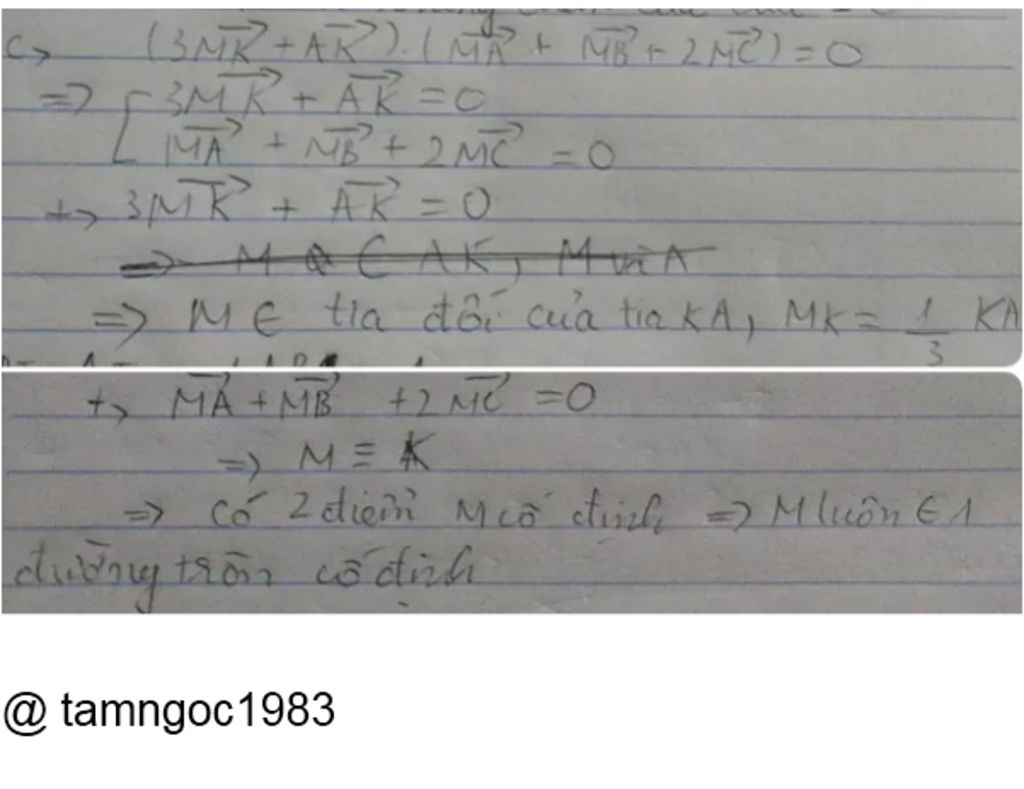 c> (3MK + AK).(MA + MB + 2MC) = 0
=> [ 3MK + AK = 0
MA + MB + 2MC = 0
+> 3MK + AK = 0
=> M ∈ tia đối của tia KA, MK = 1/3 KA
+> MA + MB + 2MC = 0
=> M ≡ K
=> có 2 điểm M cố định => M luôn ∈ 1
đường tròn cố định
@ tamngoc1983